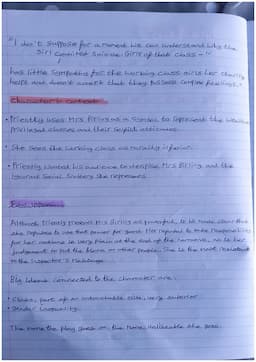 "I don't suppose for a moment we can understand why the
girl committed suicide. Girls of that class –"
has little sympathy for the working class girls her charity
helps and doesn't accept that they possess complex feelings.
Character & context
• Priestly uses Mrs Birling as a symbol to represent the wealthy
privileged classes and their selfish attitudes.
• She sees the working class as morally inferior.
• Priestly wanted his audience to despise Mrs Birling and the
ignorant social snobbery she represents.
Although Priestly presents Mrs Birling as powerful, he be makes clear that
she refuses to use that power for good. Her refusal to take responsibility
for her actions is very plain at the end of the narrative, as is her
judgement to put the blame on other people. She is the most resistant
to the Inspector's message.
Big ideas connected to the character are:
• Class, part of an untouchable elite, very superior
• Gender inequality.
The more the play goes on the more unlikeable she gets.